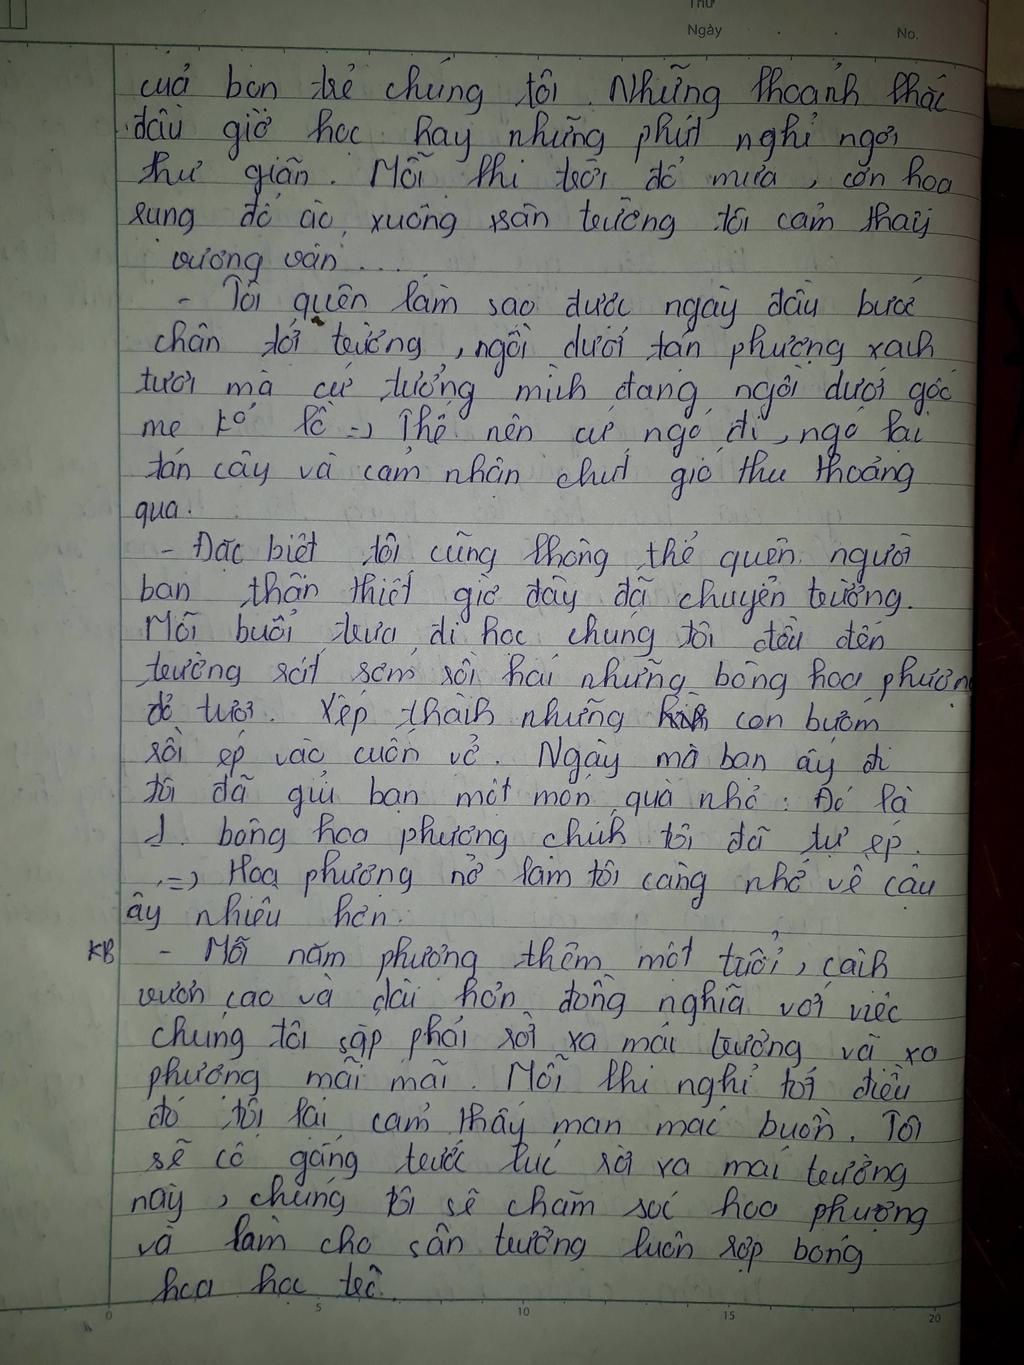 Thứ
Ngày . . No.
của bọn trẻ chúng tôi. Những khoảnh khắc
đầu giờ học hay những phút nghỉ ngơi
thư giãn. Mỗi khi trời đổ mưa, cơn hoa
rụng đổ ào xuống sân trường tôi cảm thấy
vương vấn ...
- Tôi quên làm sao được ngày đầu bước
chân tới trường, ngồi dưới tán phượng xanh
tươi mà cứ tưởng mình đang ngồi dưới gốc
me => Thế nên cứ ngó đi, ngó lại
tán cây và cảm nhận chút gió thu thoảng
qua.
- Đặc biệt tôi cũng không thể quên người
bạn thân thiết giờ đây đã chuyển trường.
Mỗi buổi trưa đi học chúng tôi đều đến
trường rất sớm rồi hái những bông hoa phượng
đỏ tươi. Xếp thành những con bướm
rồi ép vào cuốn vở. Ngày mà bạn ấy đi
tôi đã gửi bạn một món quà nhỏ: Đó là
1 bông hoa phượng chính tôi đã tự ép.
=> Hoa phượng nở làm tôi càng nhớ về cậu
ấy nhiều hơn.
KB - Mỗi năm phượng thêm một tuổi, cành
vươn cao và dài hơn đồng nghĩa với việc
chúng tôi sắp phải rời xa mái trường và xa
phượng mãi mãi. Mỗi khi nghĩ tới điều
đó tôi lại cảm thấy man mác buồn. Tôi
sẽ cố gắng trước lúc rời xa mái trường
này, chúng tôi sẽ chăm sóc hoa phượng
và làm cho sân trường luôn rợp bóng
hoa học trò.
0 5 10 15 20